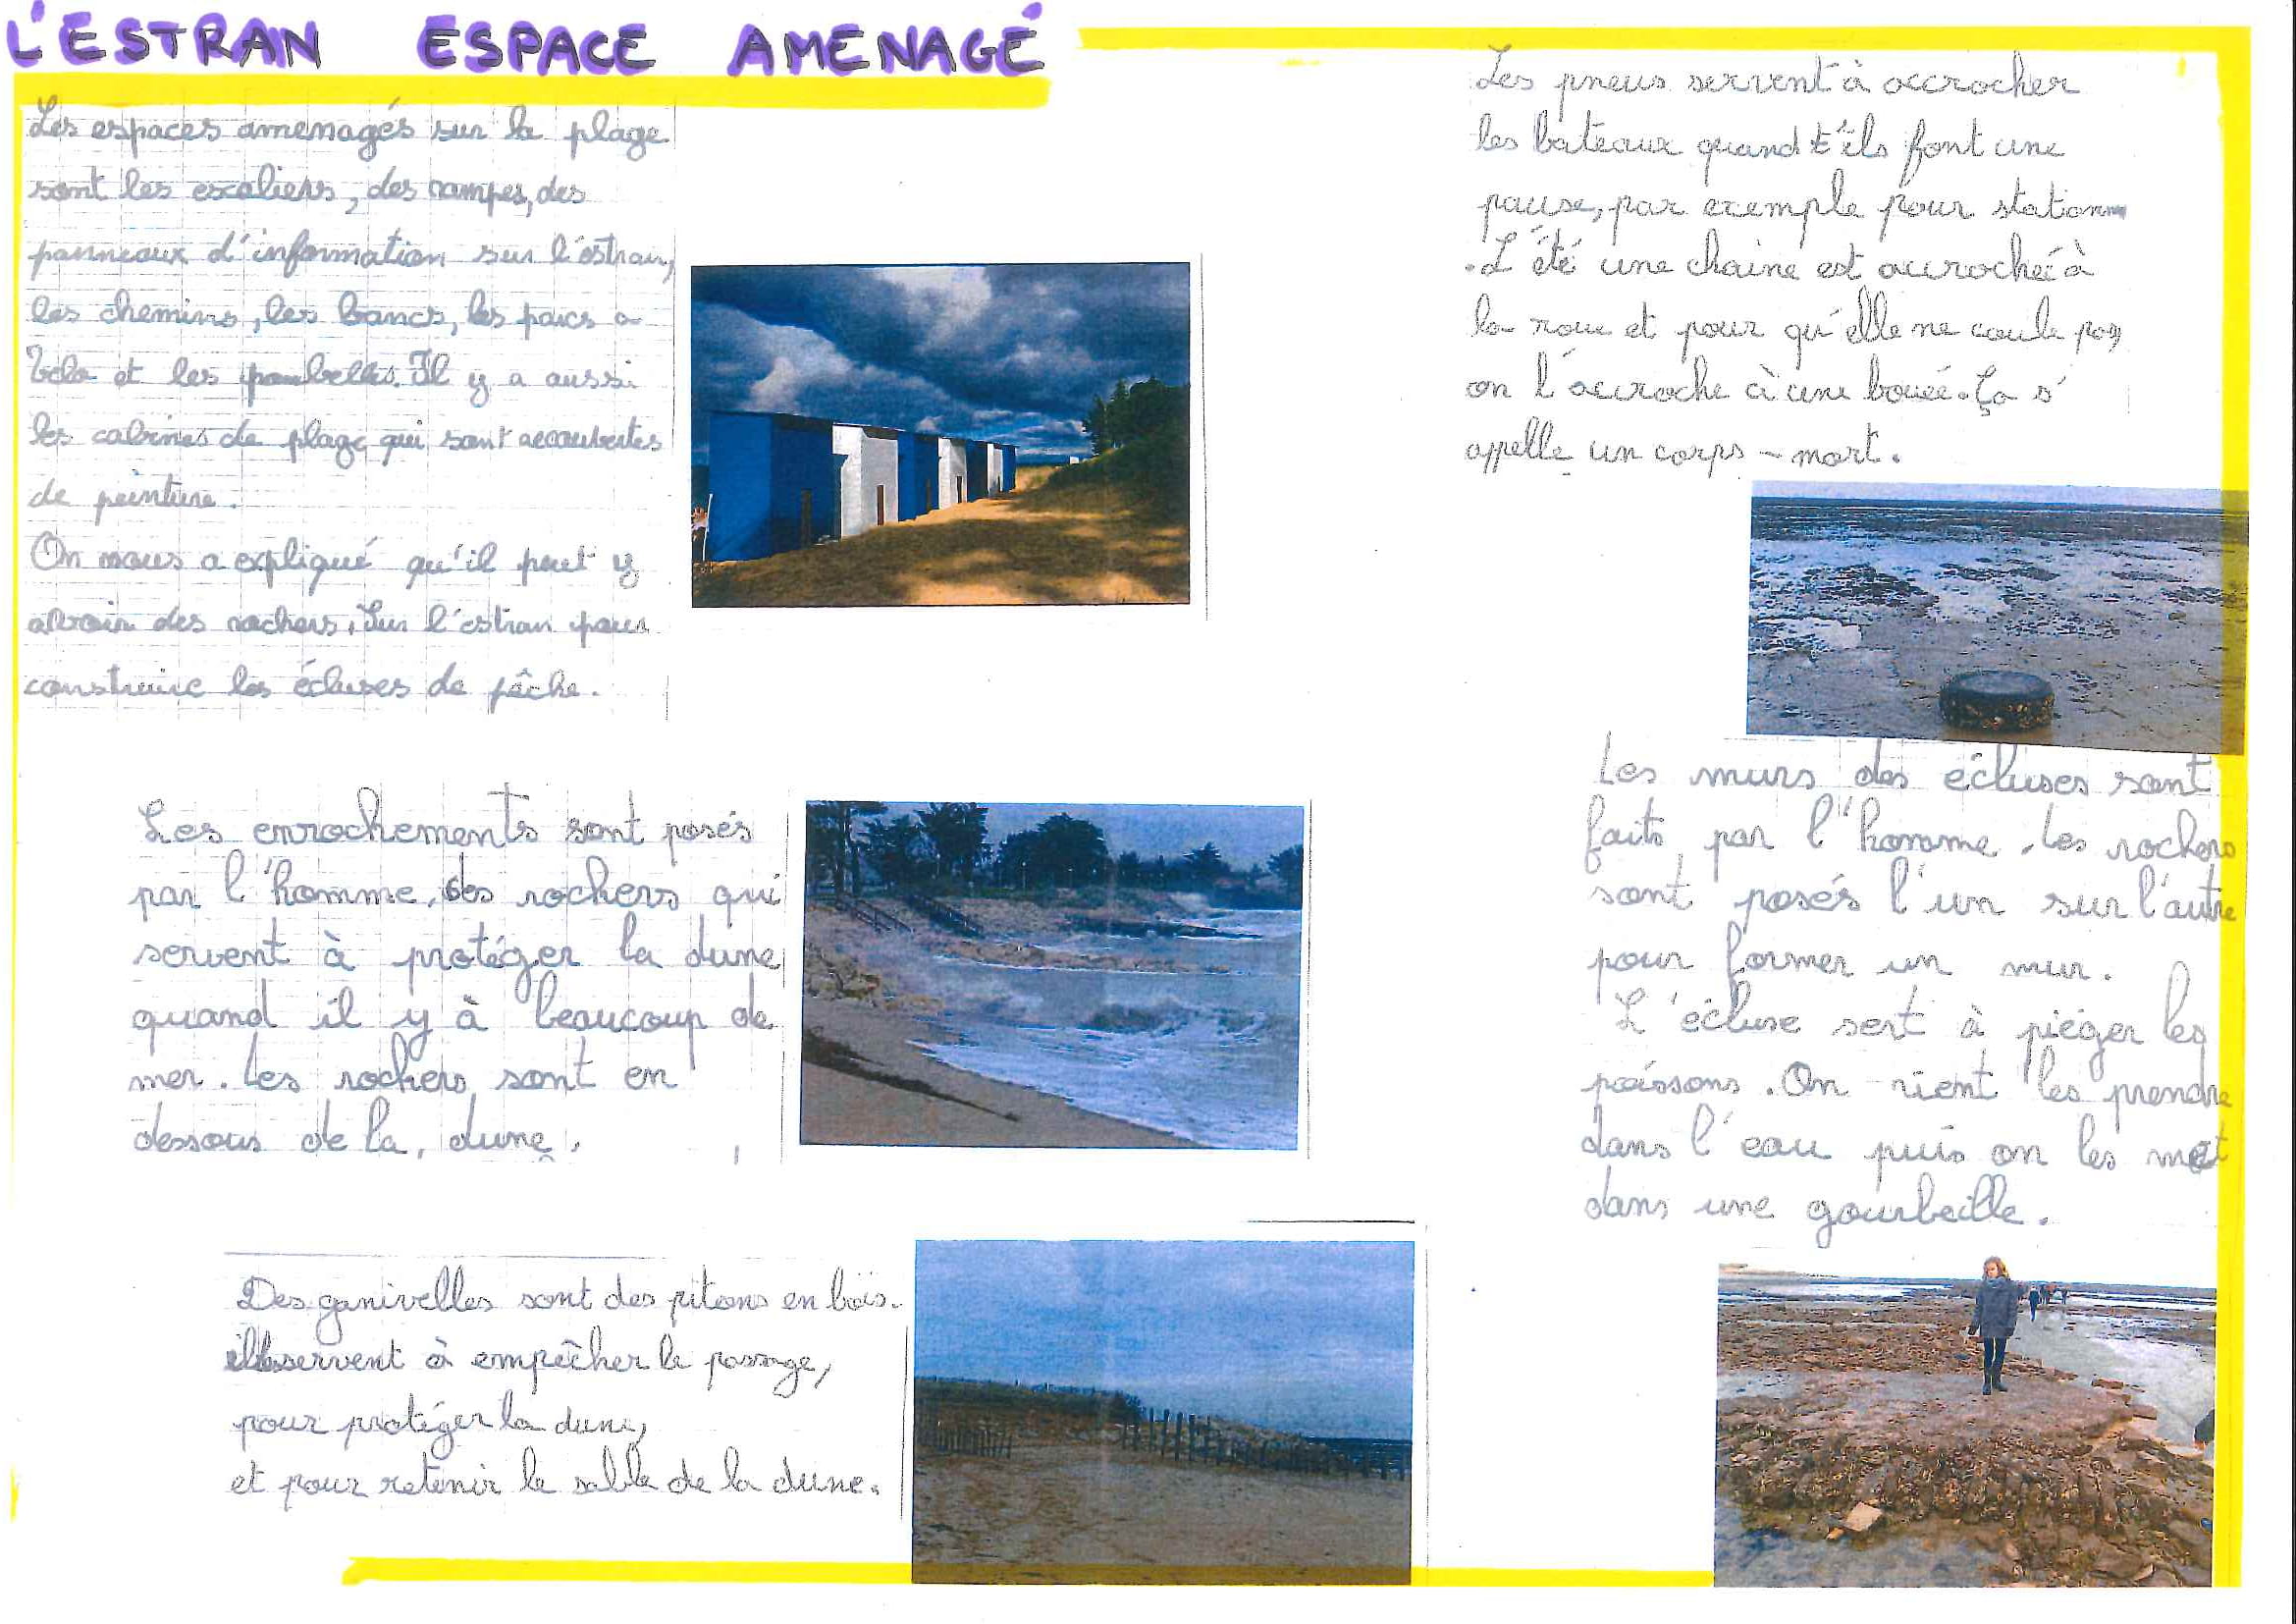 L'ESTRAN ESPACE AMENAGÉ
Les espaces amenagés sur la plage
sont les escaliers, des rampes, des
panneaux d'information sur l'estran,
les chemins, les bancs, les parcs a
velo et les poubelles. Il y a aussi
les cabines de plage qui sont recouvertes
de peinture.
On nous a expliqué qu'il peut y
avoir des rochers. Sur l'estran pour
construire les écluses de pêche.
Les enrochements sont posés
par l'homme, des rochers qui
servent à protéger la dune
quand il y à beaucoup de
mer. Les rochers sont en
dessous de la, dune.
Des ganivelles sont des pitons en bois.
ils servent à empêcher le passage,
pour protéger la dune,
et pour retenir le sable de la dune.
Les pneus servent à accrocher
les bateaux quand t'ils font une
pause, par exemple pour stationn
.L'été une chaine est accrochée à
la roue et pour qu'elle ne coule pas
on l'accroche à une bouée. Ça s'
appelle un corps-mort.
Les murs des écluses sont
faits par l'homme. Les rochers
sont posés l'un sur l'autre
pour former un mur.
L'écluse sert à piéger les
poissons. On vient les prendre
dans l'eau puis on les met
dans une gourbeille.